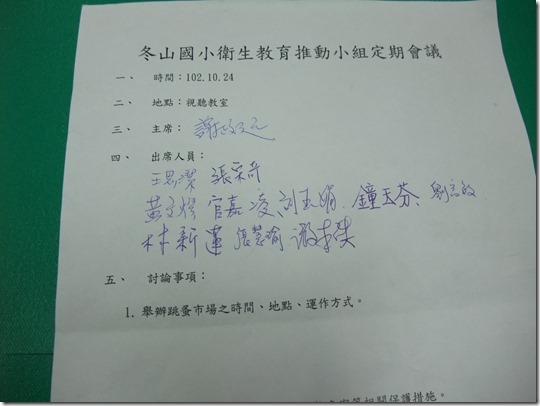 冬山國小衛生教育推動小組定期會議
一、 時間：102.10.24
二、 地點：視聽教室
三、 主席：謝
四、 出席人員：
王 張
黃 官嘉凌 刘玉娟、鐘玉芬、劉
林新蓮 張慧瑜
五、 討論事項：
1. 舉辦跳蚤市場之時間、地點、運作方式。
相關保護措施。